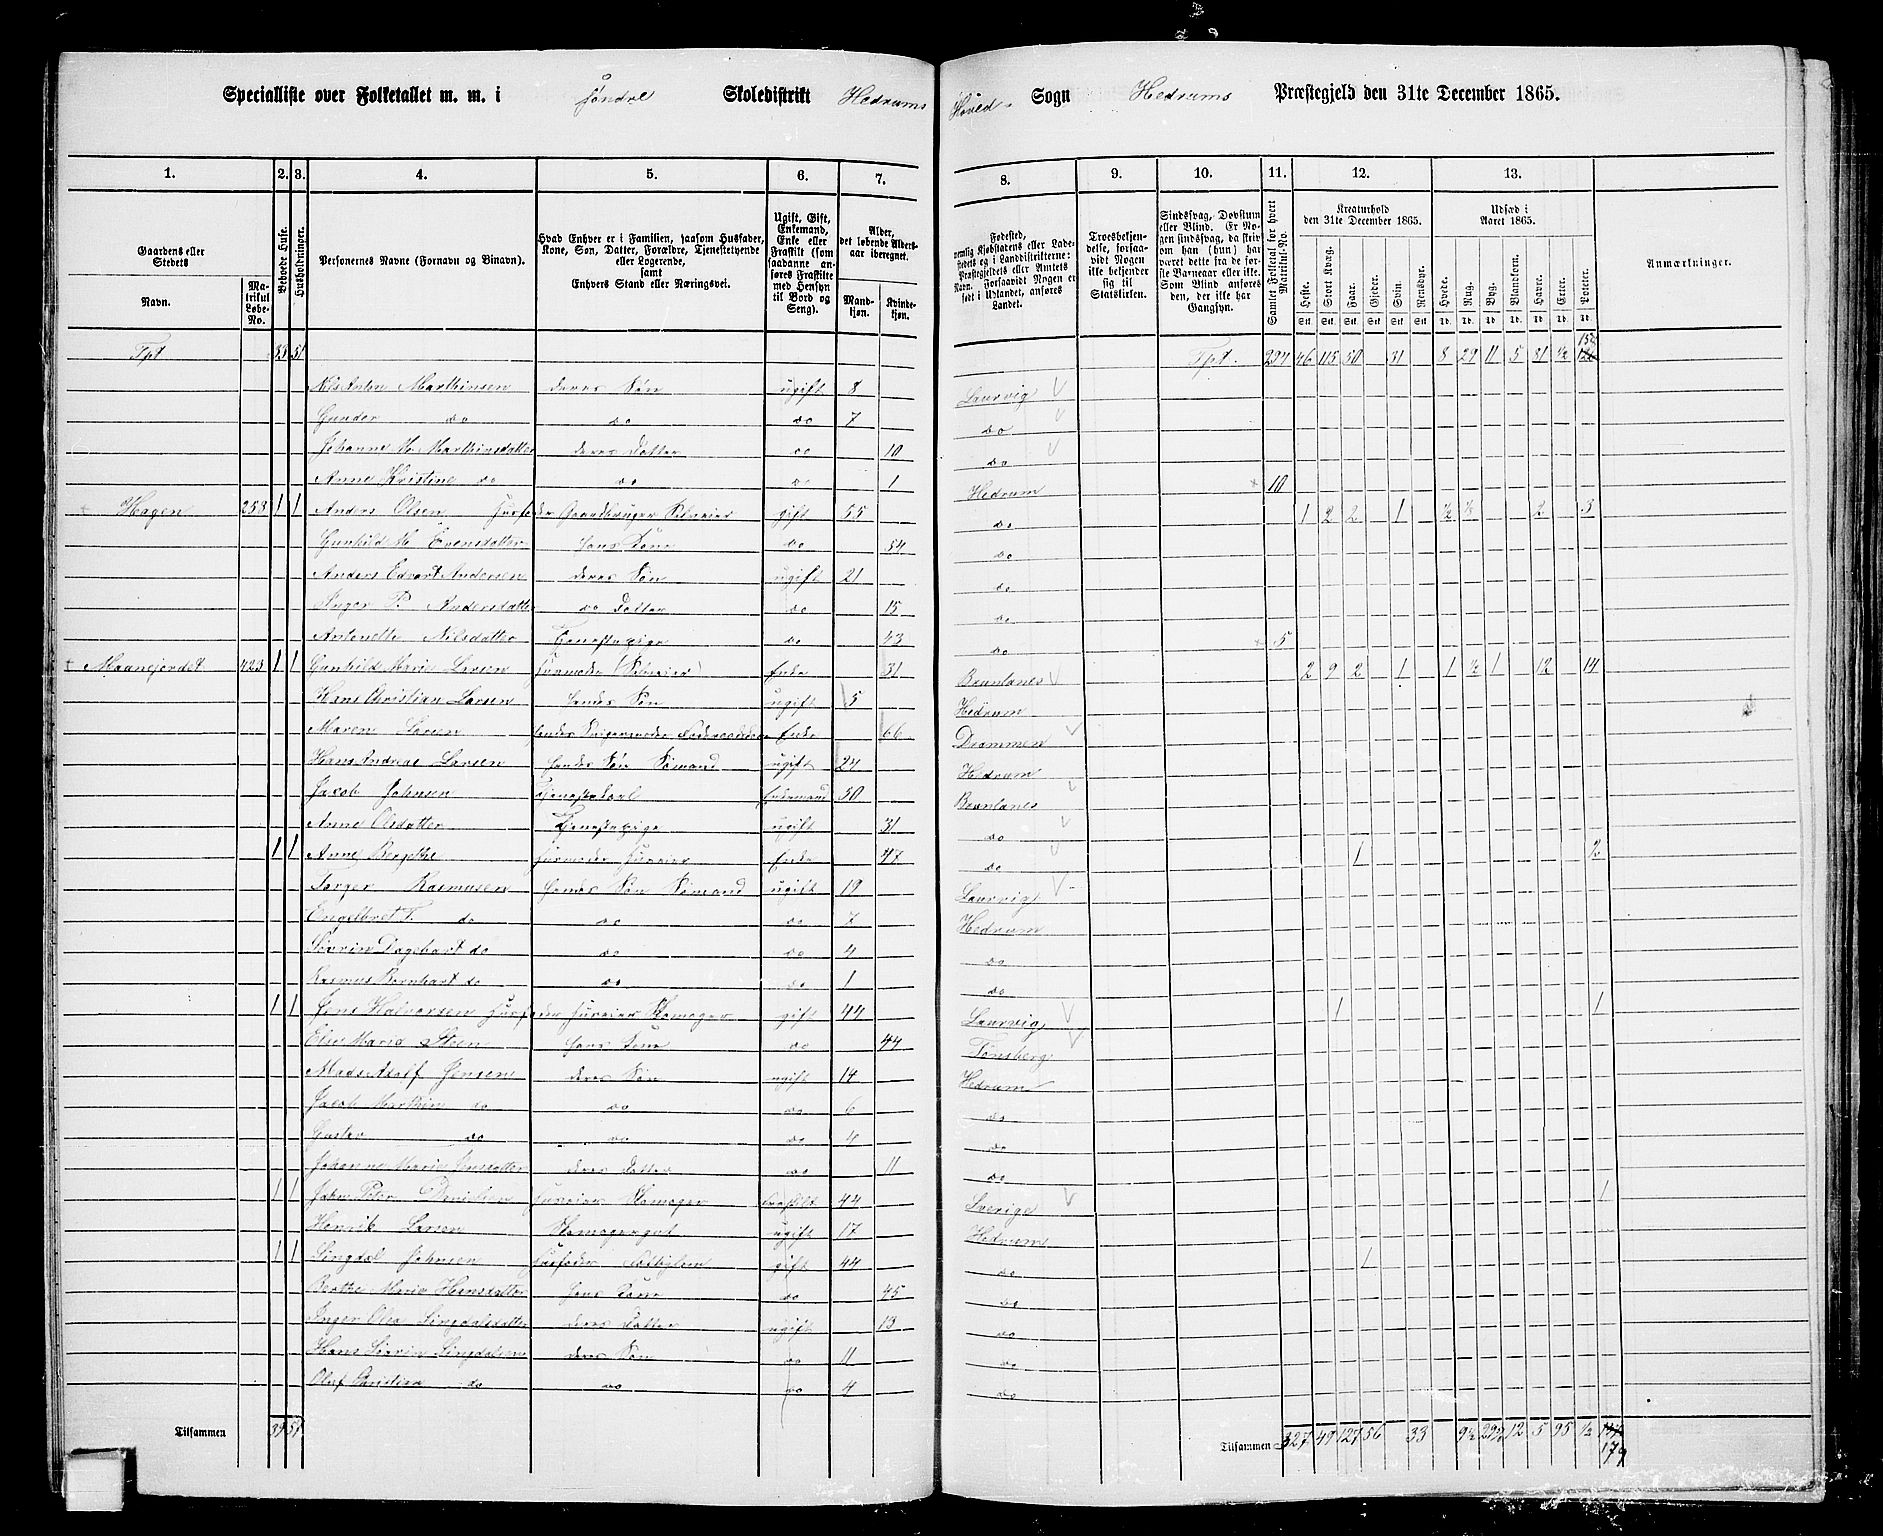 Specialliste over Folketallet m. m. i Søndre Skoledistrikt Hedrums Hoved- Sogn Hedrums Præstegjeld den 31te December 1865.
1. 2. 3. 4. 5. 6. 7. 8. 9. 10. 11. 12. 13.
Gaardens eller Stedets
Navn. Matrikul Løbe-No.
Beboede Huse.
Husholdninger.
Personernes Navne (Fornavn og Binavn).
Hvad Enhver er i Familien, saasom Husfader, Kone, Søn, Datter, Forældre, Tjenestetyende eller Logerende, samt Enhvers Stand eller Næringsvei.
Ugift, Gift, Enkemand, Enke eller Fraskilt (som saadanne anføres Fraskilte med Hensyn til Bord og Seng).
Alder, det løbende Aldersaar iberegnet.
Mandkjøn. Kvindekjøn.
Fødested,
Troesbekjendelse, forsaavidt Nogen ikke bekjender sig til Statskirken.
Sindssvag, Døvstum eller Blind.
Kreaturhold den 31te December 1865.
Heste. Stort Kvæg. Faar. Gjeder. Svin. Rensdyr.
Udsæd i Aaret 1865.
Hvede. Rug. Byg. Blandkorn. Havre. Erter. Poteter.
Anmærkninger.
Tpt 33 51 Tpt. 294 46 115 50 31 8 29 11 5 81 ½ 152
Nils Anton Marthinsen deres Søn ugift 8 Laurvig
Gunder do do do 7 do
Johanne M. Marthinsdatter deres Datter do 10 do
Anne Kristine do do do 1 Hedrum 10
Hagen 253 1 1 Anders Olsen Husfader Gaardbruger Selveier gift 55 do 1 2 2 1 ½ ½ 2 3
Gunhild M. Evensdatter hans Kone do 54 do
Anders Edvart Andersen deres Søn ugift 21 do
Inger P. Andersdatter do Datter do 15 do
Antonette Nilsdatter Tjenestepige do 43 do 5
Maanejordet 423 1 1 Gunhild Marie Larsen Husmoder (Selveier) Enke 31 Brunlanes 2 9 2 1 1 ½ 1 12 14
Hans Christian Larsen hendes Søn ugift 5 Hedrum
Maren Larsen hendes Svigermoder Enke 66 Drammen
Hans Andreas Larsen hendes Søn Sømand ugift 24 Hedrum
Jacob Johnsen Tjenestekarl Enkemand 50 Brunlanes
Anne Olsdatter Tjenestepige ugift 31 do
1 1 Anne Husmoder Huseier Enke 47 do 1 2
Torger Rasmusen hendes Søn Sømand ugift 19 Laurvig
Engelbret T. do do do 7 Hedrum
Søvrin Dagebart do do do 4 do
Rasmus Bernhart do do do 1 do
1 1 Jens Halvorsen Husfader Huseier Skomager gift 44 Laurvig 1 1
Elise Maria Steen hans Kone do 44 Tønsberg
Mads Adolf Jensen deres Søn ugift 14 Hedrum
Jacob Marthin do do do 6 do
Gustav do do do 4 do
Johanne Marie Jensdatter deres Datter do 11 do
1 1 John Peter Danielsen Huseier Skomager fraskilt 44 Sverige 1
Henrik Larsen Skomagergut ugift 17 Hedrum
1 1 Lingdal Johnsen Husfader gift 44 do 1
Berthe Marie Hansdatter hans Kone do 45 do
Inger Olea Lingdalsdatter deres Datter ugift 13 do
Hans Søvrin Lingdalsen deres Søn do 11 do
Oluf Kristian do do do 4 do
Tilsammen 39 57 Tilsammen 327 49 127 56 33 9½ 29½ 12 5 95 ½ 179